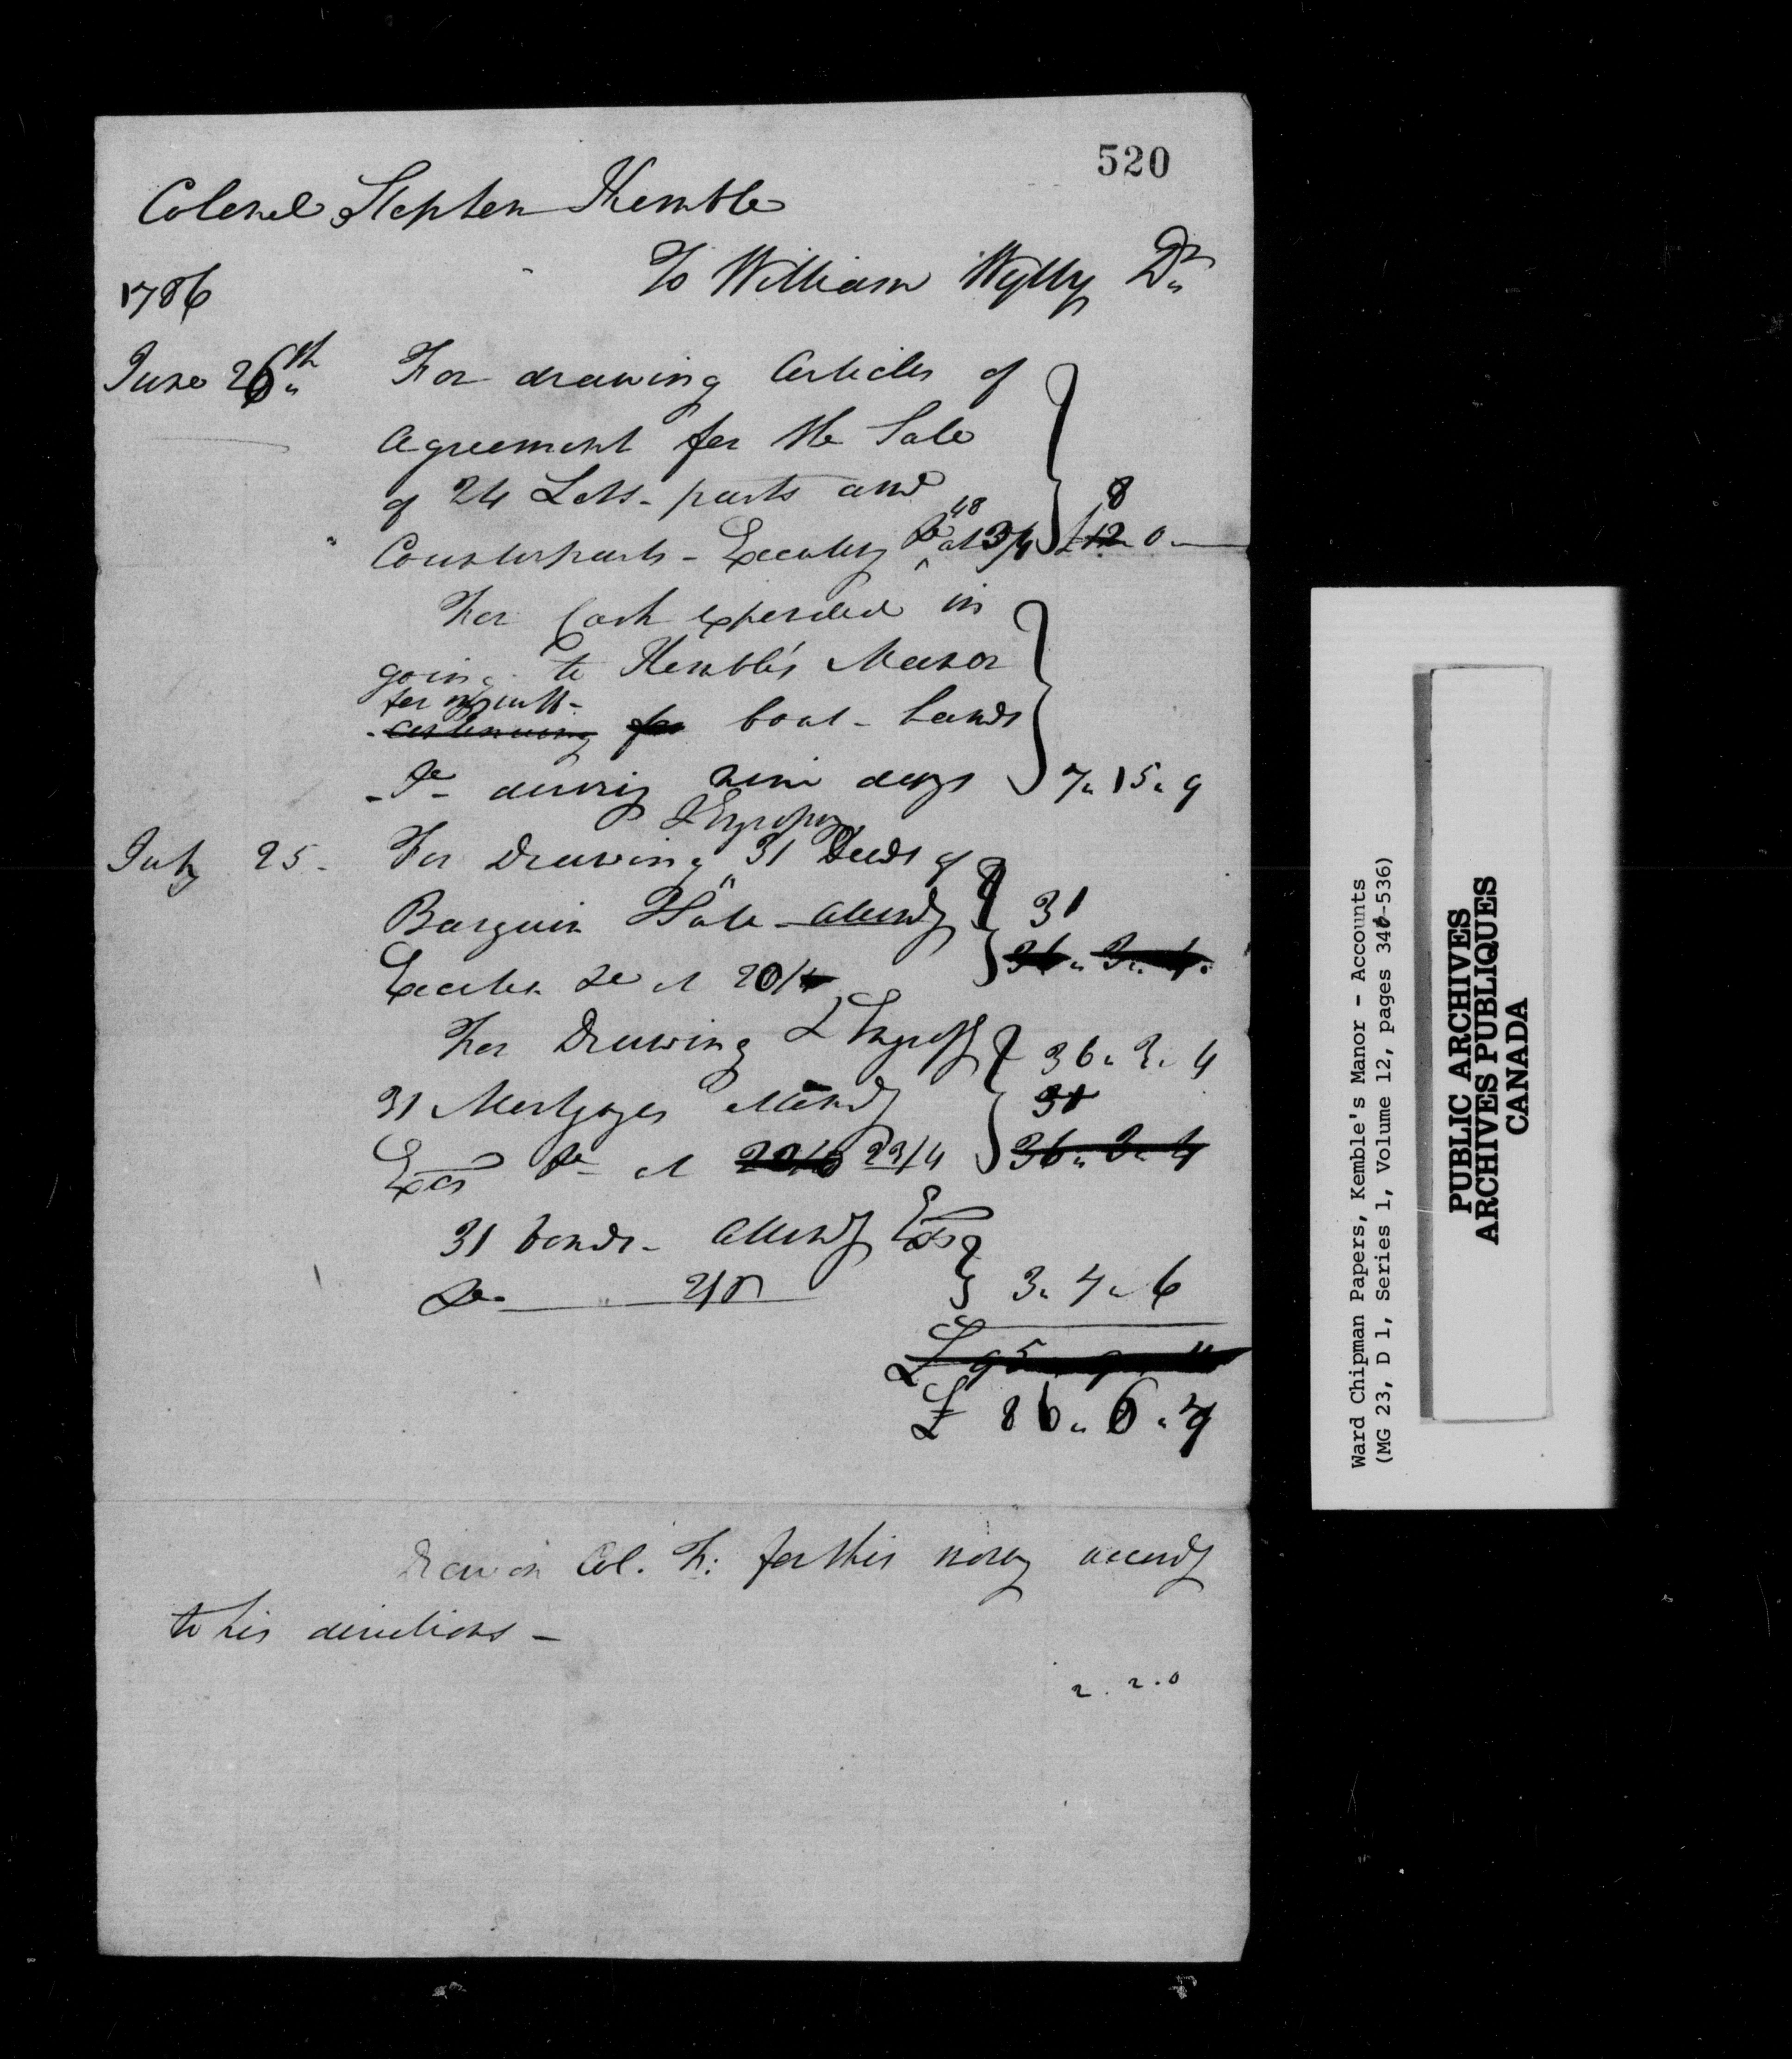 520
Colonel Stephen Kemble
To William Wylly Dr
1786
June 26th For drawing Articles of
Agreement for the Sale
of 24 Lotts - parts and
Counterparts - Executg Do 48 at 3/4 £ 12 8 0
For Cash expended in
going to Kemble's Manor
for
boat - hands
during nine days 7 " 15 " 9
July 25 - For Drawing & Engrossg 31 Deeds of
Bargain & Sale - attendg 31
Execution Do at 20/ 36 " 3 " 4
For Drawing & Engrossg 36 " 3 " 4
31 Mortgages attendg 31
Exn Do at 23/4 36 " 3 " 4
31 bonds - attendg Exn
Do 3 " 4 " 6
£ 95 9 11
£ 86 " 6 " 7
Draw on Col. K: for this money accordg
to his directions -
2 . 2 . 0
Ward Chipman Papers, Kemble's Manor - Accounts
(MG 23, D 1, Series 1, Volume 12, pages 340-536)
PUBLIC ARCHIVES
ARCHIVES PUBLIQUES
CANADA